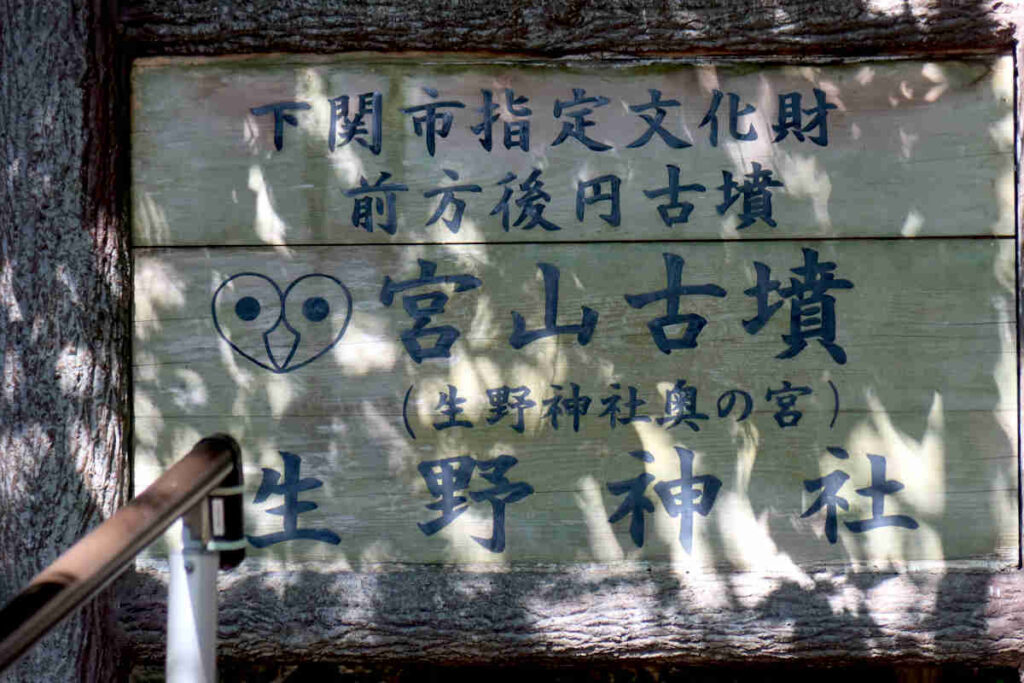 下関市指定文化財
前方後円古墳
宮山古墳
(生野神社奥の宮)
生野神社